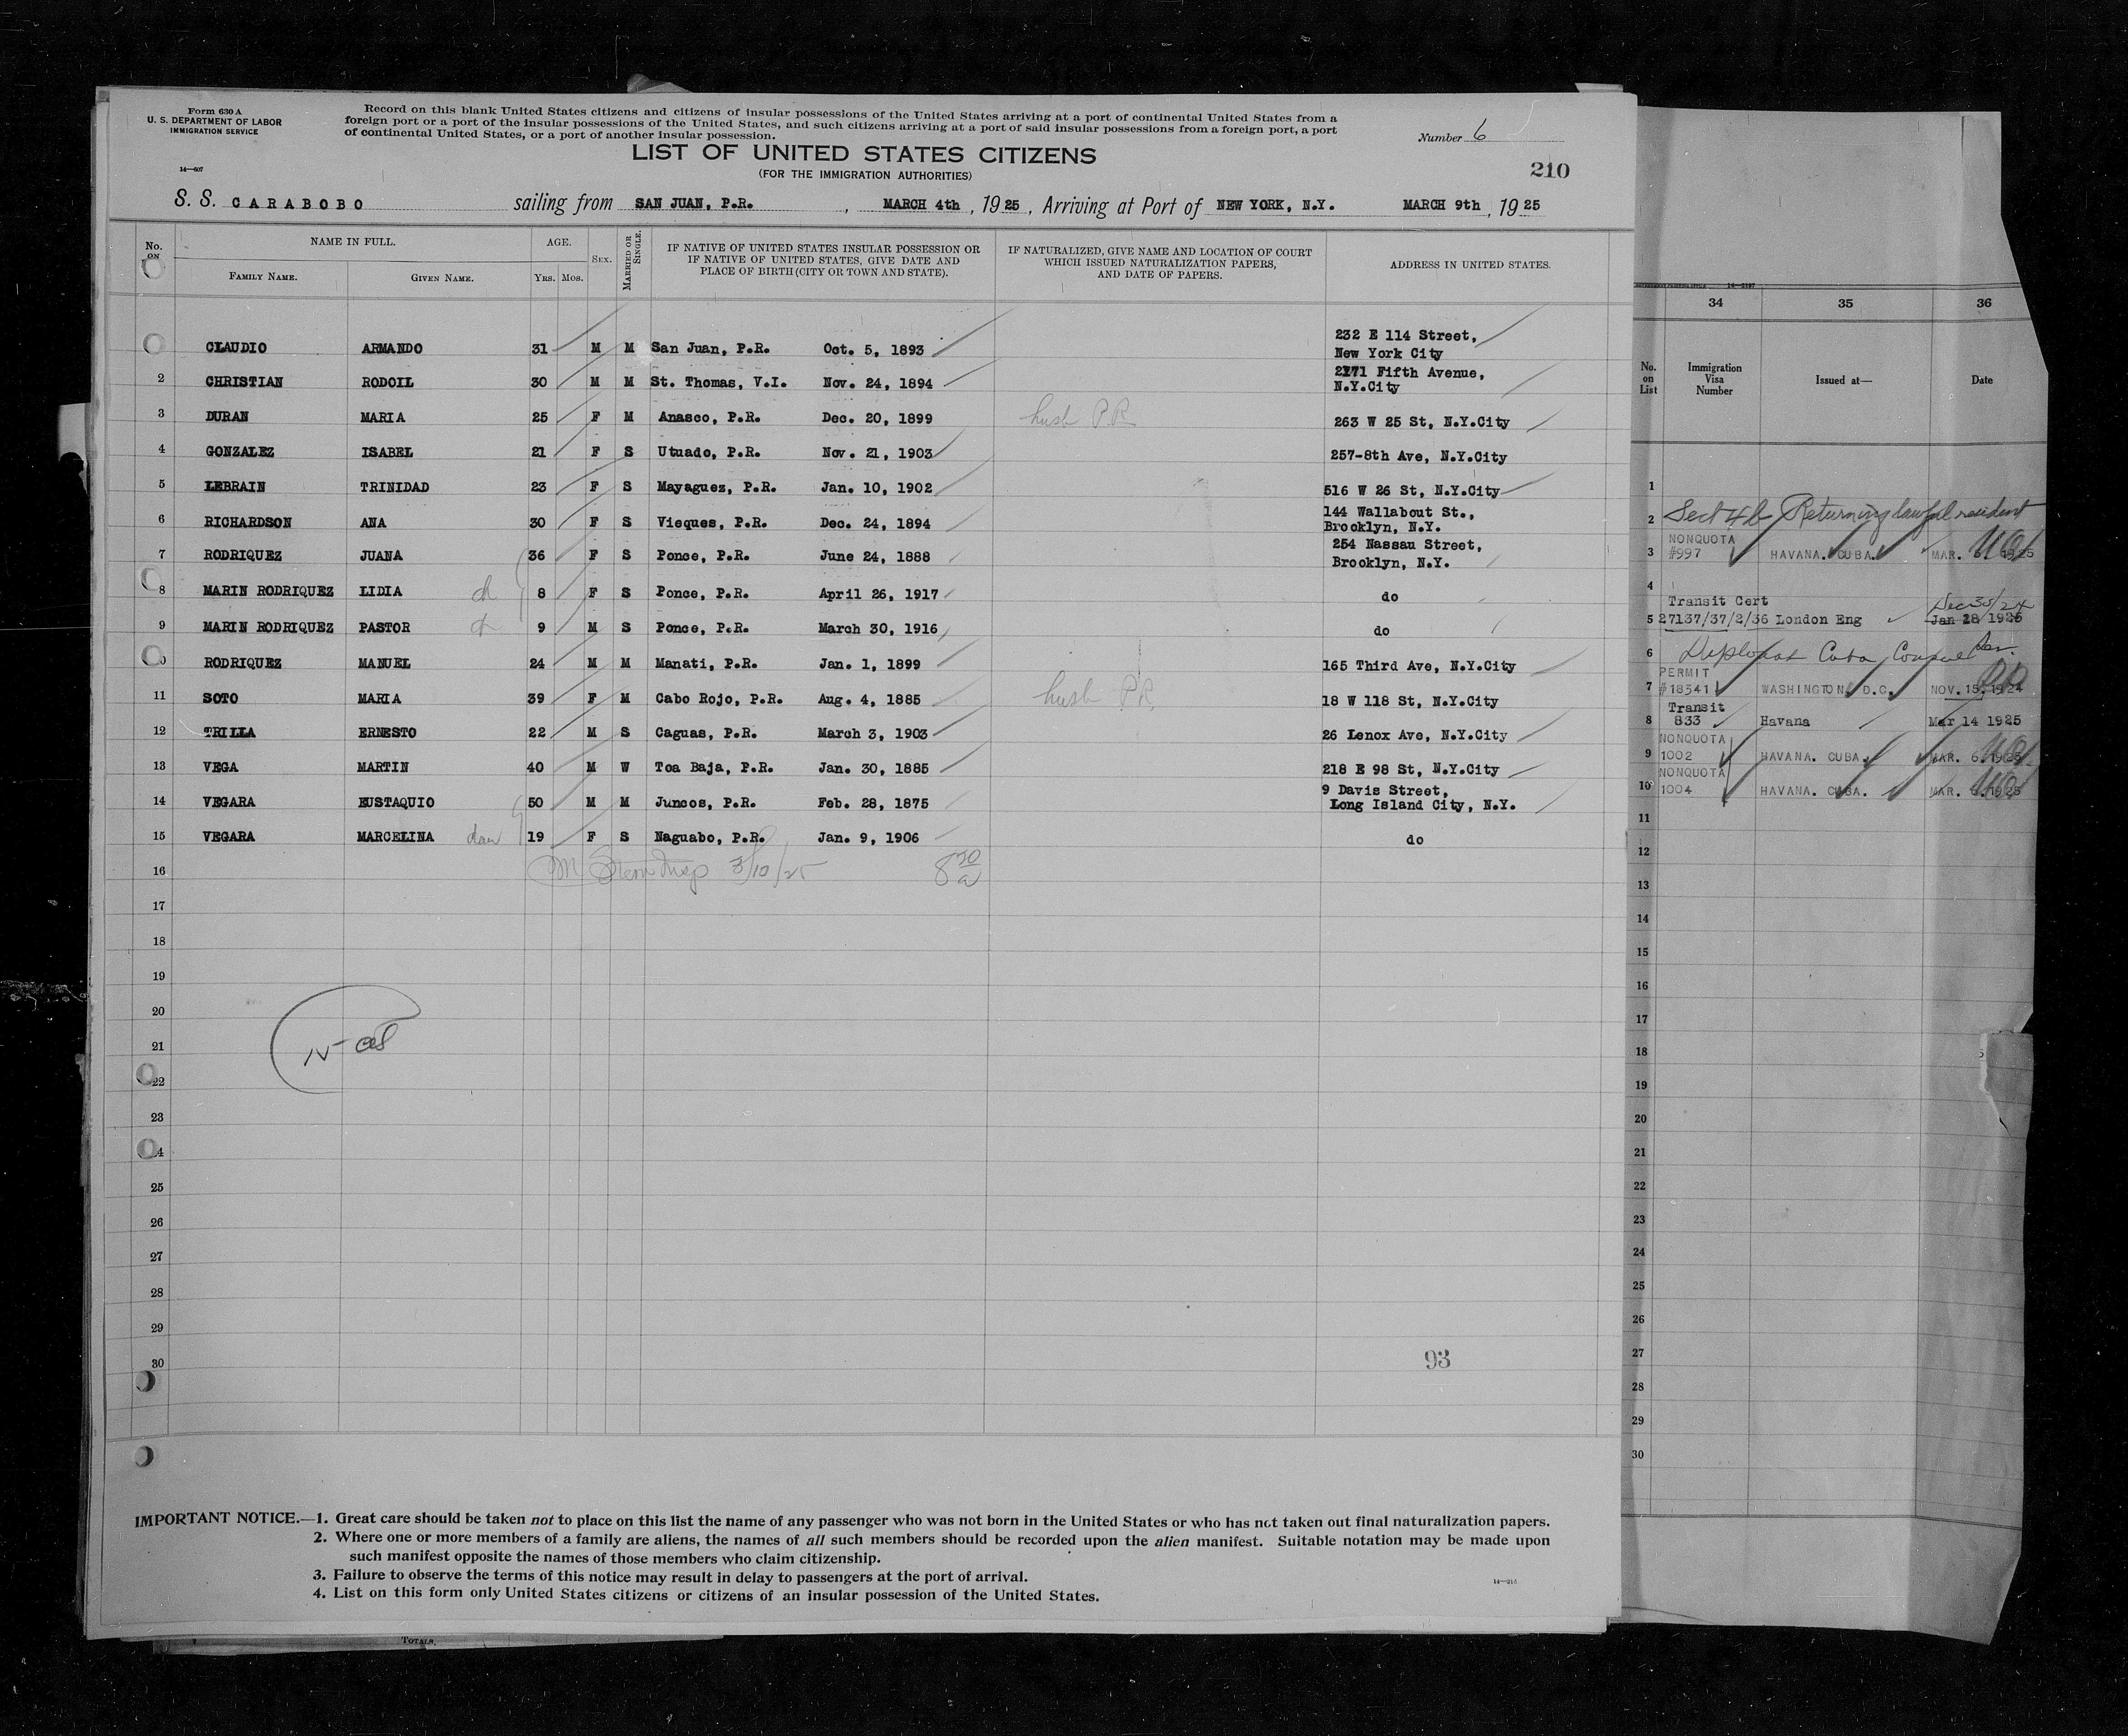 Form 630 A
U. S. DEPARTMENT OF LABOR
IMMIGRATION SERVICE
14—607
Record on this blank United States citizens and citizens of insular possessions of the United States arriving at a port of continental United States from a
foreign port or a port of the insular possessions of the United States, and such citizens arriving at a port of said insular possessions from a foreign port, a port
of continental United States, or a port of another insular possession.
Number 6
LIST OF UNITED STATES CITIZENS
(FOR THE IMMIGRATION AUTHORITIES)
210
S. S. CARABOBO sailing from SAN JUAN, P.R. , MARCH 4th , 1925 , Arriving at Port of NEW YORK, N.Y. MARCH 9th , 1925
No. ON
NAME IN FULL.
FAMILY NAME. GIVEN NAME.
AGE.
YRS. MOS.
SEX.
MARRIED OR SINGLE.
IF NATIVE OF UNITED STATES INSULAR POSSESSION OR
IF NATIVE OF UNITED STATES, GIVE DATE AND
PLACE OF BIRTH (CITY OR TOWN AND STATE).
IF NATURALIZED, GIVE NAME AND LOCATION OF COURT
WHICH ISSUED NATURALIZATION PAPERS,
AND DATE OF PAPERS.
ADDRESS IN UNITED STATES.
CLAUDIO ARMANDO 31 M M San Juan, P.R. Oct. 5, 1893 232 E 114 Street,
New York City
2 CHRISTIAN RODOIL 30 M M St. Thomas, V.I. Nov. 24, 1894 2171 Fifth Avenue,
N.Y.City
3 DURAN MARIA 25 F M Anasco, P.R. Dec. 20, 1899 husb P.R. 263 W 25 St, N.Y.City
4 GONZALEZ ISABEL 21 F S Utuado, P.R. Nov. 21, 1903 257-8th Ave, N.Y.City
5 LEBRAIN TRINIDAD 23 F S Mayaguez, P.R. Jan. 10, 1902 516 W 26 St, N.Y.City
6 RICHARDSON ANA 30 F S Vieques, P.R. Dec. 24, 1894 144 Wallabout St.,
Brooklyn, N.Y.
7 RODRIQUEZ JUANA 36 F S Ponce, P.R. June 24, 1888 254 Nassau Street,
Brooklyn, N.Y.
8 MARIN RODRIQUEZ LIDIA ch 8 F S Ponce, P.R. April 26, 1917 do
9 MARIN RODRIQUEZ PASTOR ch 9 M S Ponce, P.R. March 30, 1916 do
RODRIQUEZ MANUEL 24 M M Manati, P.R. Jan. 1, 1899 165 Third Ave, N.Y.City
11 SOTO MARIA 39 F M Cabo Rojo, P.R. Aug. 4, 1885 husb P.R. 18 W 118 St, N.Y.City
12 TRILLA ERNESTO 22 M S Caguas, P.R. March 3, 1903 26 Lenox Ave, N.Y.City
13 VEGA MARTIN 40 M W Toa Baja, P.R. Jan. 30, 1885 218 E 98 St, N.Y.City
14 VEGARA EUSTAQUIO 50 M M Juncos, P.R. Feb. 28, 1875 9 Davis Street,
Long Island City, N.Y.
15 VEGARA MARCELINA dau 19 F S Naguabo, P.R. Jan. 9, 1906 do
16 Insp 3/10/25 8 30 a
17
18
19
20
21
22
23
24
25
26
27
28
29
30
93
IMPORTANT NOTICE.—1. Great care should be taken not to place on this list the name of any passenger who was not born in the United States or who has not taken out final naturalization papers.
2. Where one or more members of a family are aliens, the names of all such members should be recorded upon the alien manifest. Suitable notation may be made upon
such manifest opposite the names of those members who claim citizenship.
3. Failure to observe the terms of this notice may result in delay to passengers at the port of arrival.
4. List on this form only United States citizens or citizens of an insular possession of the United States.
TOTALS.
34 35 36
No. on List
Immigration Visa Number
Issued at—
Date
1
2 Sect 4b Returning lawful resident
NONQUOTA
3 #997 HAVANA. CUBA. MAR. 1925
4
Transit Cert Dec 30/24
5 27137/37/2/36 London Eng Jan 28 1925
6 Diplomat Cuba Consul
PERMIT
7 #18541 WASHINGTON, D.C. NOV. 15, 1924
Transit
8 833 Havana Mar 14 1925
NONQUOTA
9 1002 HAVANA. CUBA. MAR. 6, 1925
NONQUOTA
10 1004 HAVANA. CUBA. MAR. 1925
11
12
13
14
15
16
17
18
19
20
21
22
23
24
25
26
27
28
29
30